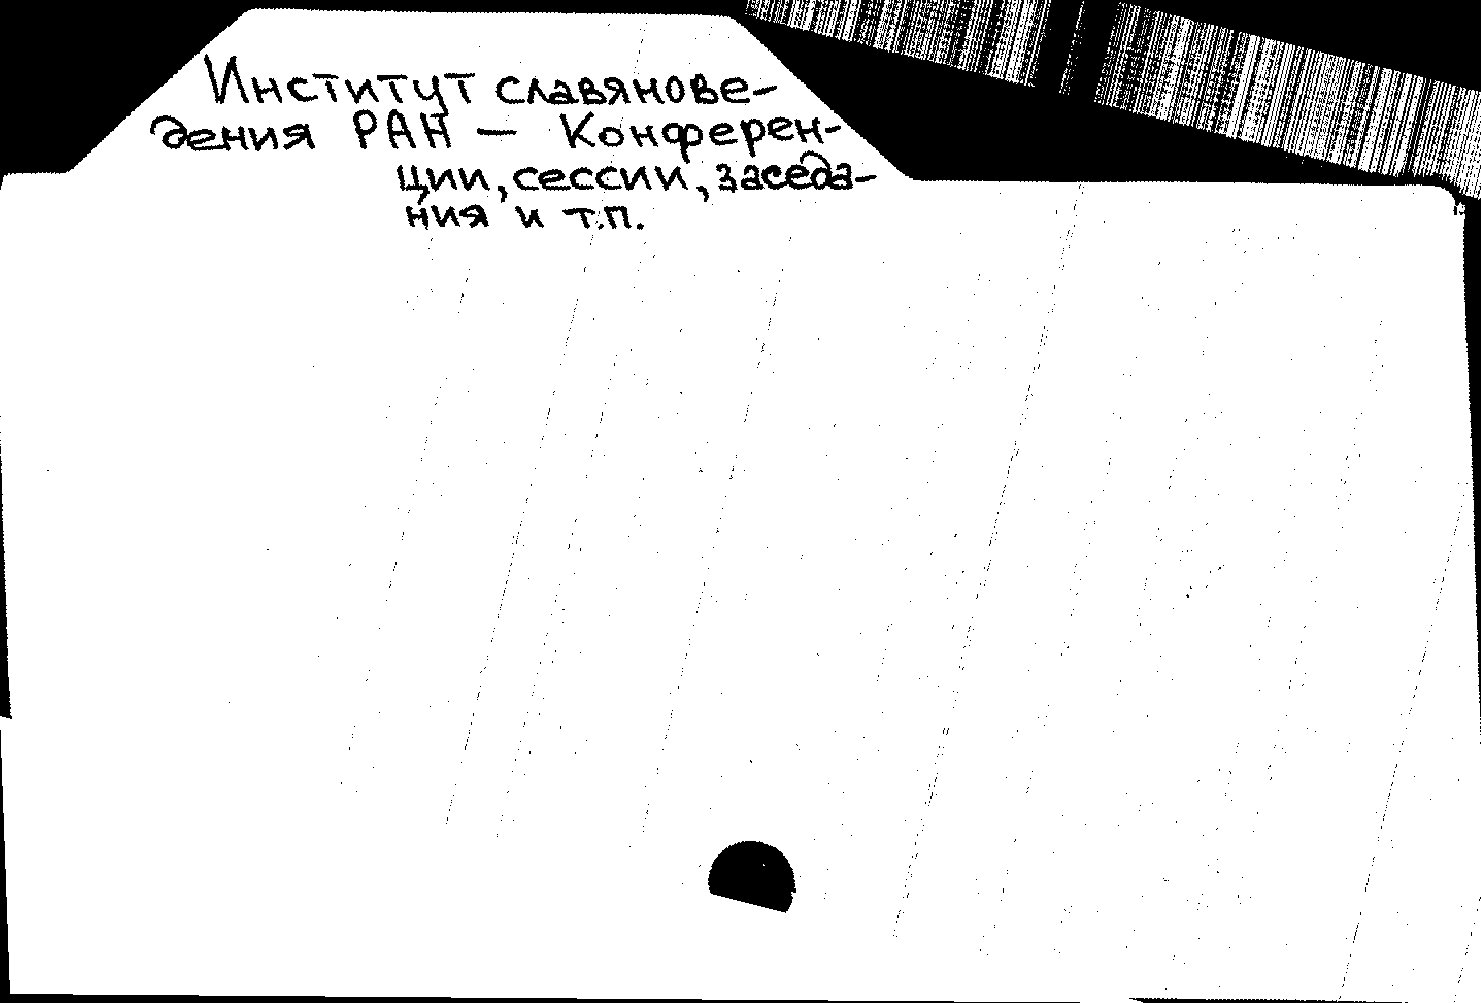 Институт славянове-
дения РАН — Конферен-
ции, сессии, заседа-
ния и т.п.